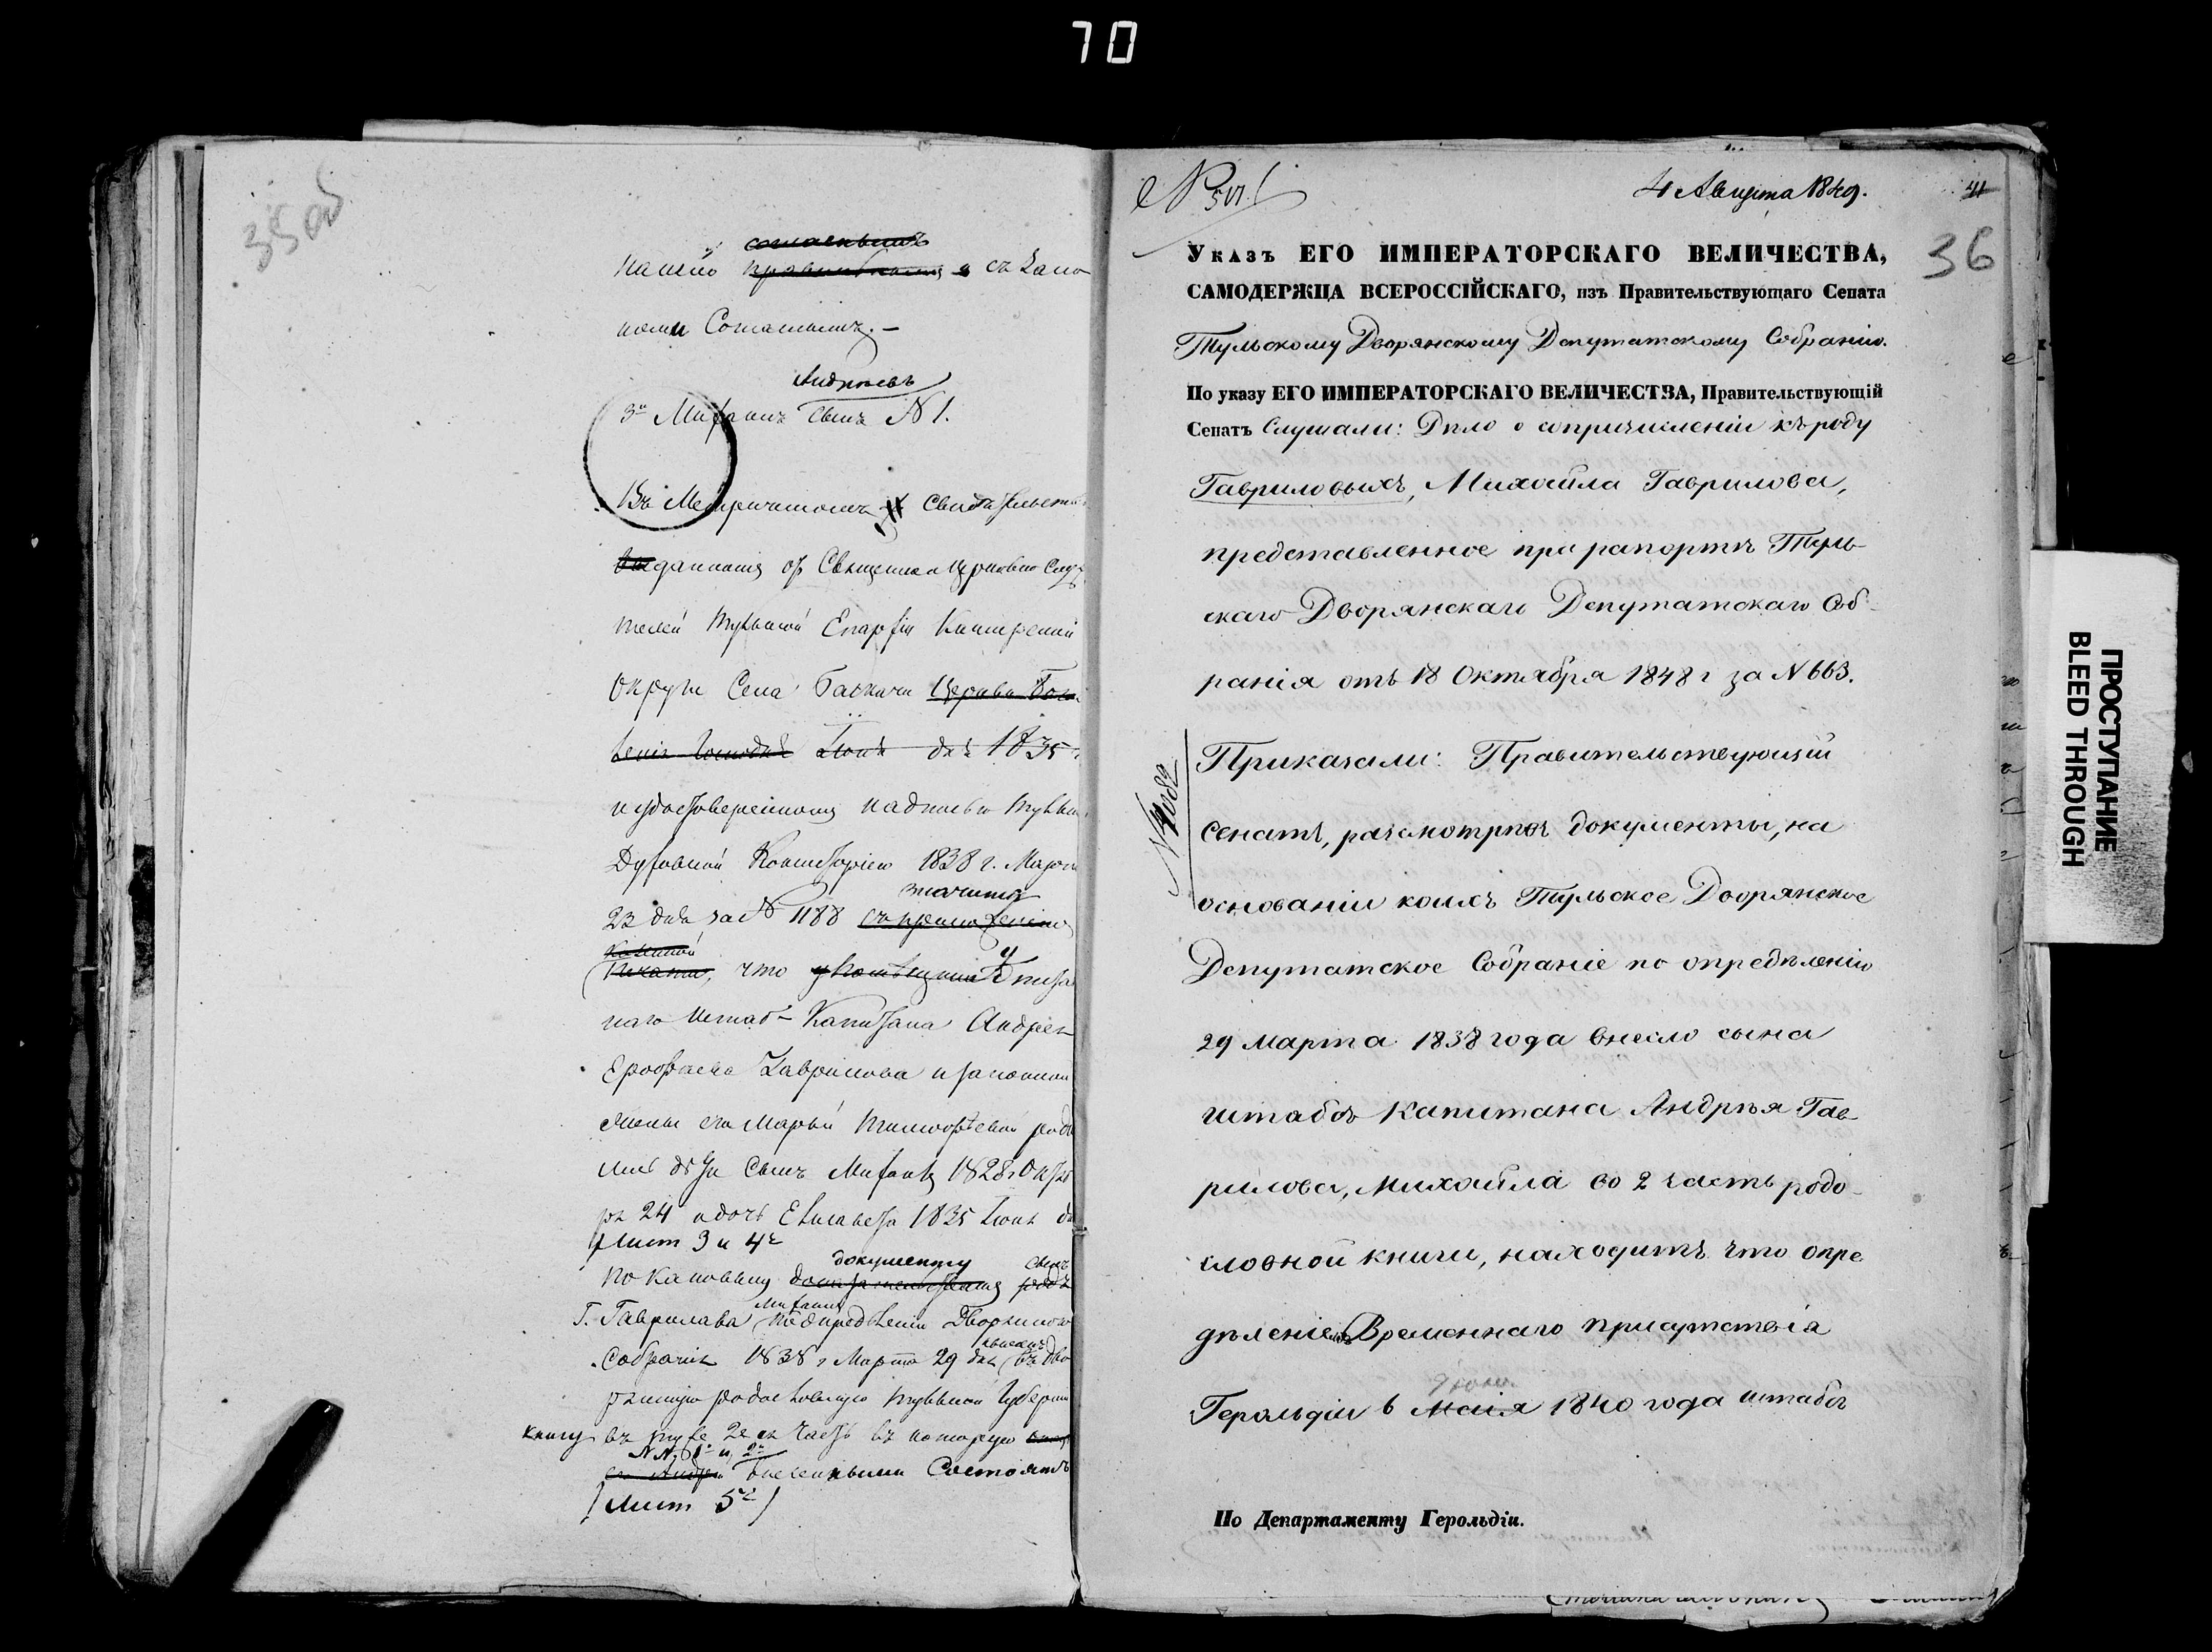 70
35 об
согласнымъ
нашло правильнымъ и съ зако
нами Согласнымъ. –
Андреевъ
3й Михаилъ сынъ N 1.
Въ Метрическомъ Свидѣтельств
данномъ отъ Священно и Церковно Служ
телей Тульской Епархіи Каширской
Округи Села Баскачи Церкви
Іюня дня 1835 г
и удостовѣренномъ надписью Тульск
Духовной Консисторіею 1838 г. Марта
значится
23 дня за N 1188 съ приложеніемъ
Казенной
Печати, что у
наго Штабс-Капитана Андрея
Ерофѣева Гаврилова и законной
жены его Марьи родi
лись дѣти Сынъ Михаилъ 1828 г Октяб
ря 24 и дочь Елисавета 1835 Іюня дн
Лист 3 и 4й
документу сынъ
По каковому родъ
Михаилъ
Г. Гаврилова по опредѣленію Дворянскаго
внесенъ
Собранія 1838 г Марта 29 дня въ дво
рянскую родословную Тульской Губерніи
книгу въ туже 2ю часть въ которую
N N. 1й и 2й
внесенными Состоятъ
(Лист 5й)
N 501.
4 Августа 1849.
41
36
Указъ ЕГО ИМПЕРАТОРСКАГО ВЕЛИЧЕСТВА,
САМОДЕРЖЦА ВСЕРОССІЙСКАГО, изъ Правительствующаго Сената
Тульскому Дворянскому Депутатскому Собранію.
По указу ЕГО ИМПЕРАТОРСКАГО ВЕЛИЧЕСТВА, Правительствующій
Сенатъ Слушали: Дѣло о сопричисленіи къ роду
Гавриловыхъ, Михаила Гаврилова,
представленное при рапортѣ Туль
скаго Дворянскаго Депутатскаго Соб-
ранія отъ 18 Октября 1848 г за N 663.
Приказали: Правительствующій
Сенатъ, разсмотрѣвъ документы, на
основаніи коихъ Тульское Дворянское
Депутатское Собраніе по опредѣленію
29 Марта 1838 года внесло сына
штабсъ Капитана Андрѣя Гав
рилова, Михаила во 2 часть родо-
словной книги, находитъ что опре
дѣленіемъ Временнаго присутствія
Герольдіи 6 Маія 1840 года штабсъ
По Департаменту Герольдіи.
ПРОСТУПАНИЕ
BLEED THROUGH